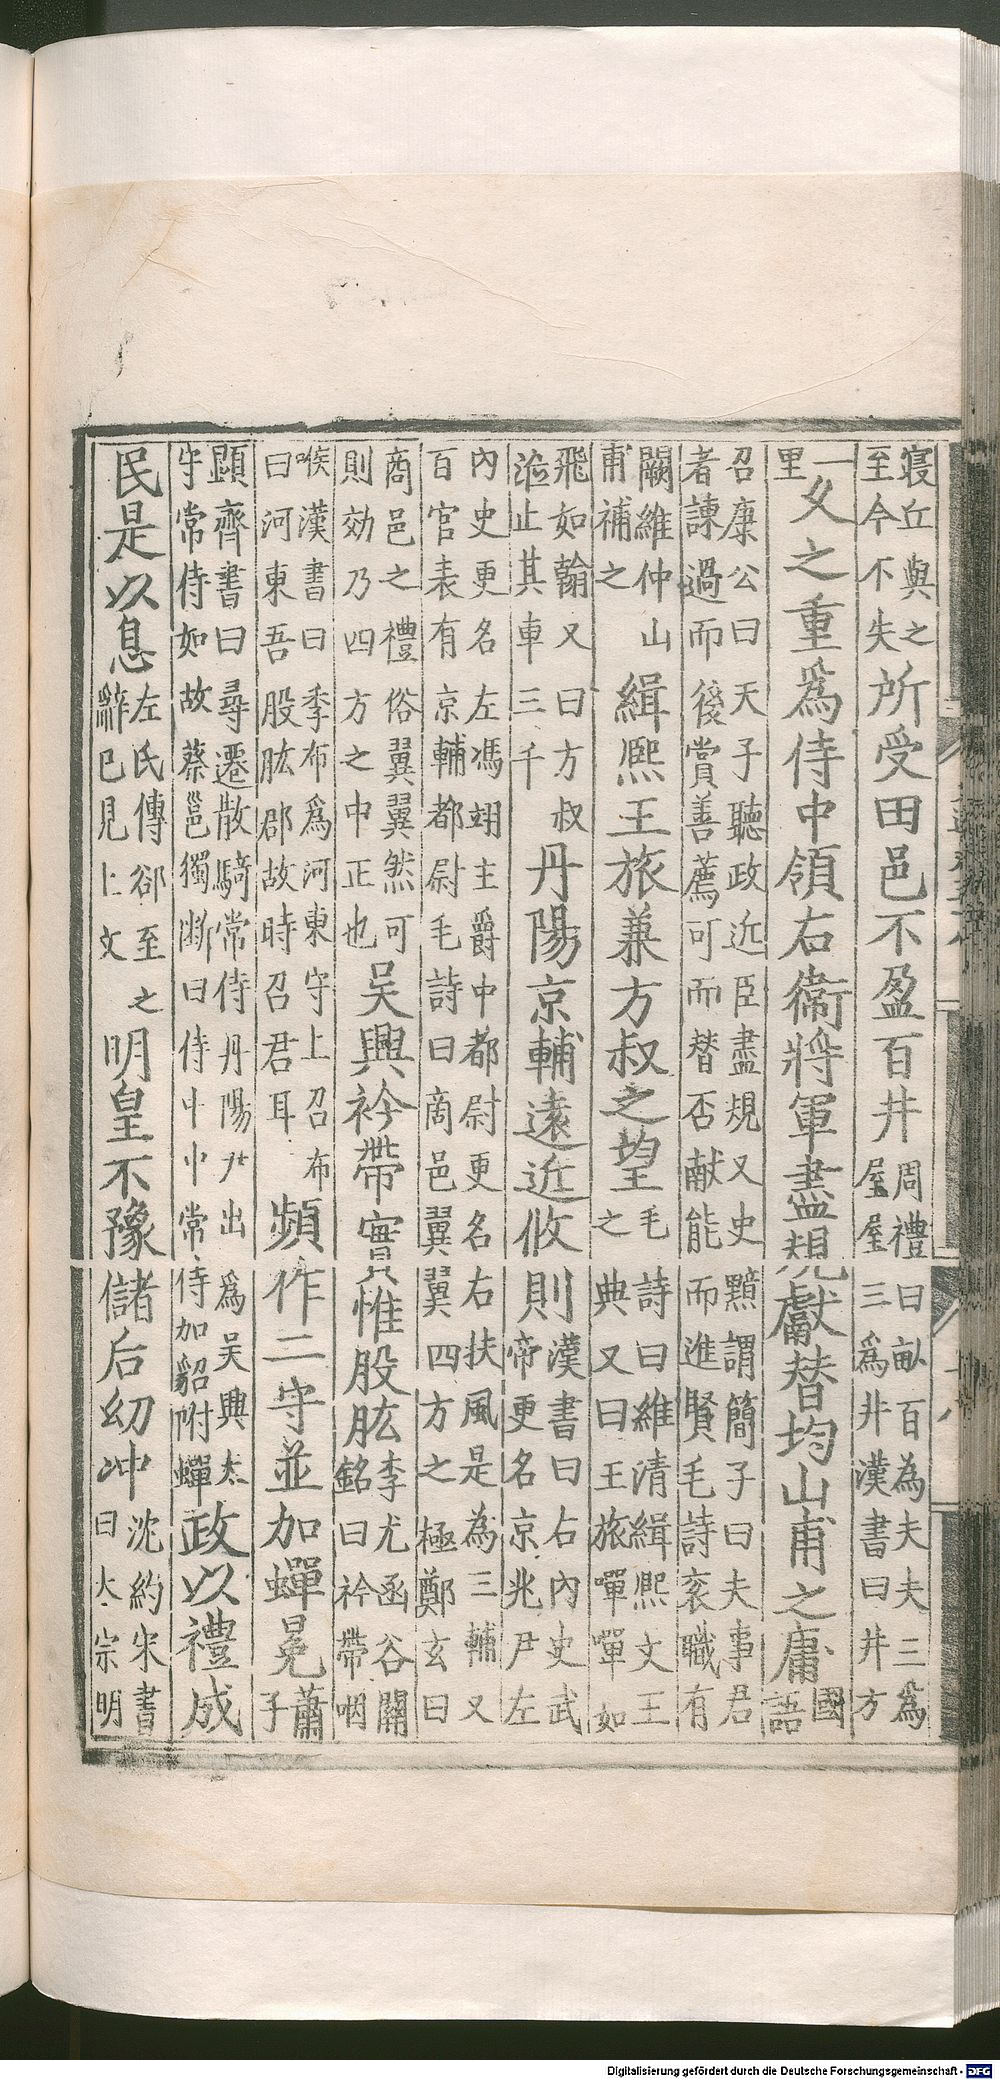 寑丘與之至今不失所受田邑不盈百井周禮曰畝百為夫夫三為屋屋三為井漢書曰井方
一里乂之重爲侍中領右衞將軍盡規獻替均山甫之庸國語
召康公曰天子聽政近臣盡規又史黯謂簡子曰夫事君者諫過而後賞善薦可而替否献能而進賢毛詩衮職有
闕維仲山甫補之緝熙王旅兼方叔之望毛詩曰維清緝熙文王之典又曰王旅嘽嘽如
飛如翰又曰方叔涖止其車三千丹陽京輔遠近攸則漢書曰右內史武帝更名京兆尹左
內史更名左馮翊主爵中都尉更名右扶風是為三輔又百官表有京輔都尉毛詩曰商邑翼翼四方之極鄭玄曰
商邑之禮俗翼翼然可則効乃四方之中正也吳興衿帶實惟股肱李尤函谷關銘曰衿帶咽
喉漢書曰季布爲河東守上召布曰河東吾股肱郡故時召君耳頻作二守並加蟬冕蕭子
顕齊書曰尋遷散騎常侍丹陽尹出爲吳興太守常侍如故蔡邕獨斷曰侍中中常侍加貂附蟬政以禮成
民是以息左氏傳郤至之辭已見上文明皇不豫儲后幼冲沈約宋書曰太宗明
Digitalisierung gefördert durch die Deutsche Forschungsgemeinschaft - DFG